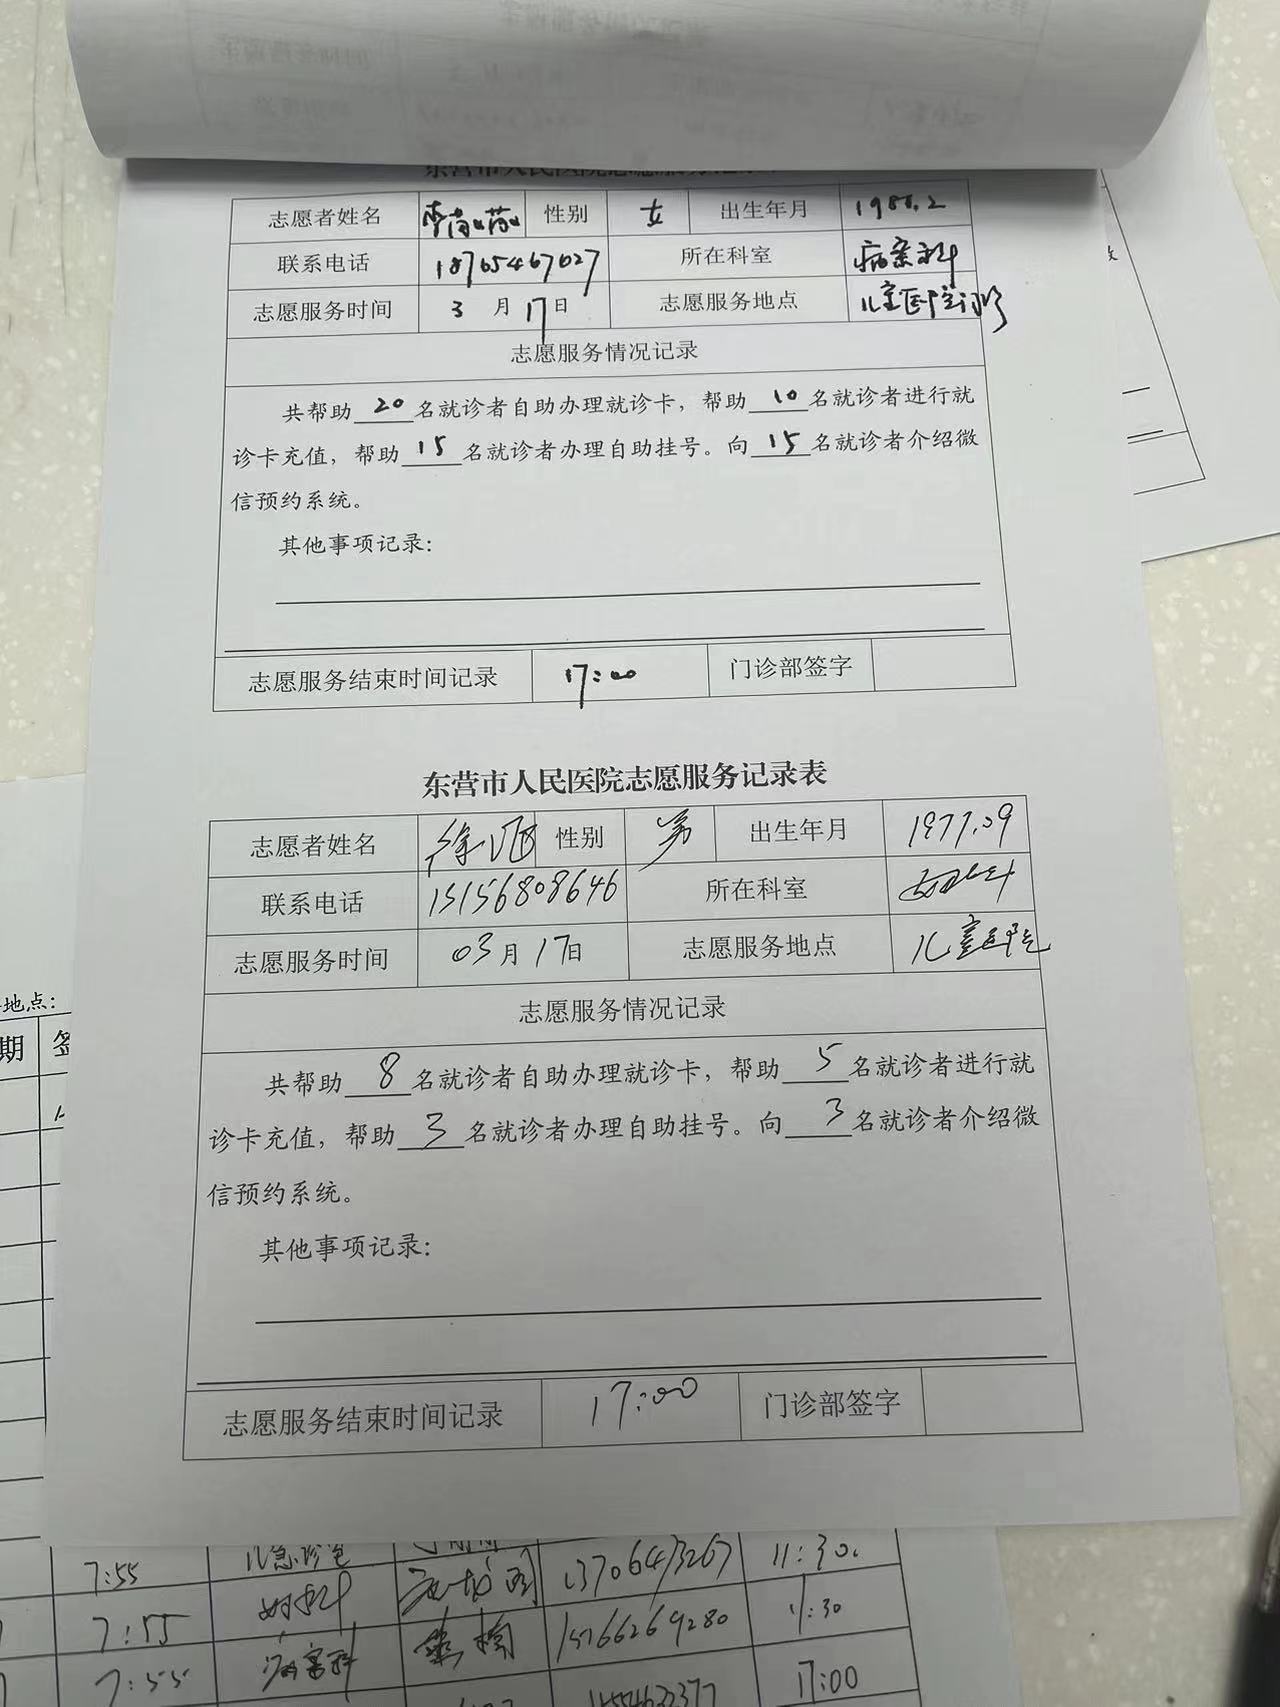 志愿者姓名 性别 女 出生年月
联系电话 18765467027 所在科室 病案科
志愿服务时间 3月17日 志愿服务地点 儿童医院门诊
志愿服务情况记录
共帮助20名就诊者自助办理就诊卡，帮助10名就诊者进行就
诊卡充值，帮助15名就诊者办理自助挂号。向15名就诊者介绍微
信预约系统。
其他事项记录：
志愿服务结束时间记录 17:00 门诊部签字
东营市人民医院志愿服务记录表
志愿者姓名 性别 男 出生年月 1977.09
联系电话 15156808646 所在科室
志愿服务时间 03月17日 志愿服务地点 儿童医院
志愿服务情况记录
共帮助8名就诊者自助办理就诊卡，帮助5名就诊者进行就
诊卡充值，帮助3名就诊者办理自助挂号。向3名就诊者介绍微
信预约系统。
其他事项记录：
志愿服务结束时间记录 17:00 门诊部签字
地点：
期
7:55 儿急诊室 13706473267 11:30.
7:55 15766269280 11:30
7:55 病案科 17:00